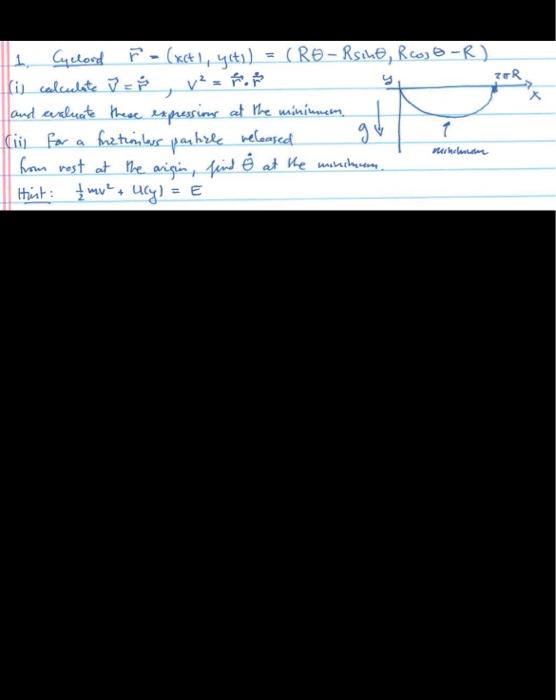 1. Cycloid r⃗ = (x(t), y(t)) = (Rθ - Rsinθ, Rcosθ - R)
(i) calculate v⃗ = ṙ⃗ , v² = ṙ⃗ . ṙ⃗
y
2πR
x
and evaluate these expressions at the minimum.
(ii) For a frictionless particle released
g
minimum
from rest at the origin, find θ̇ at the minimum.
Hint: ½mv² + U(y) = E